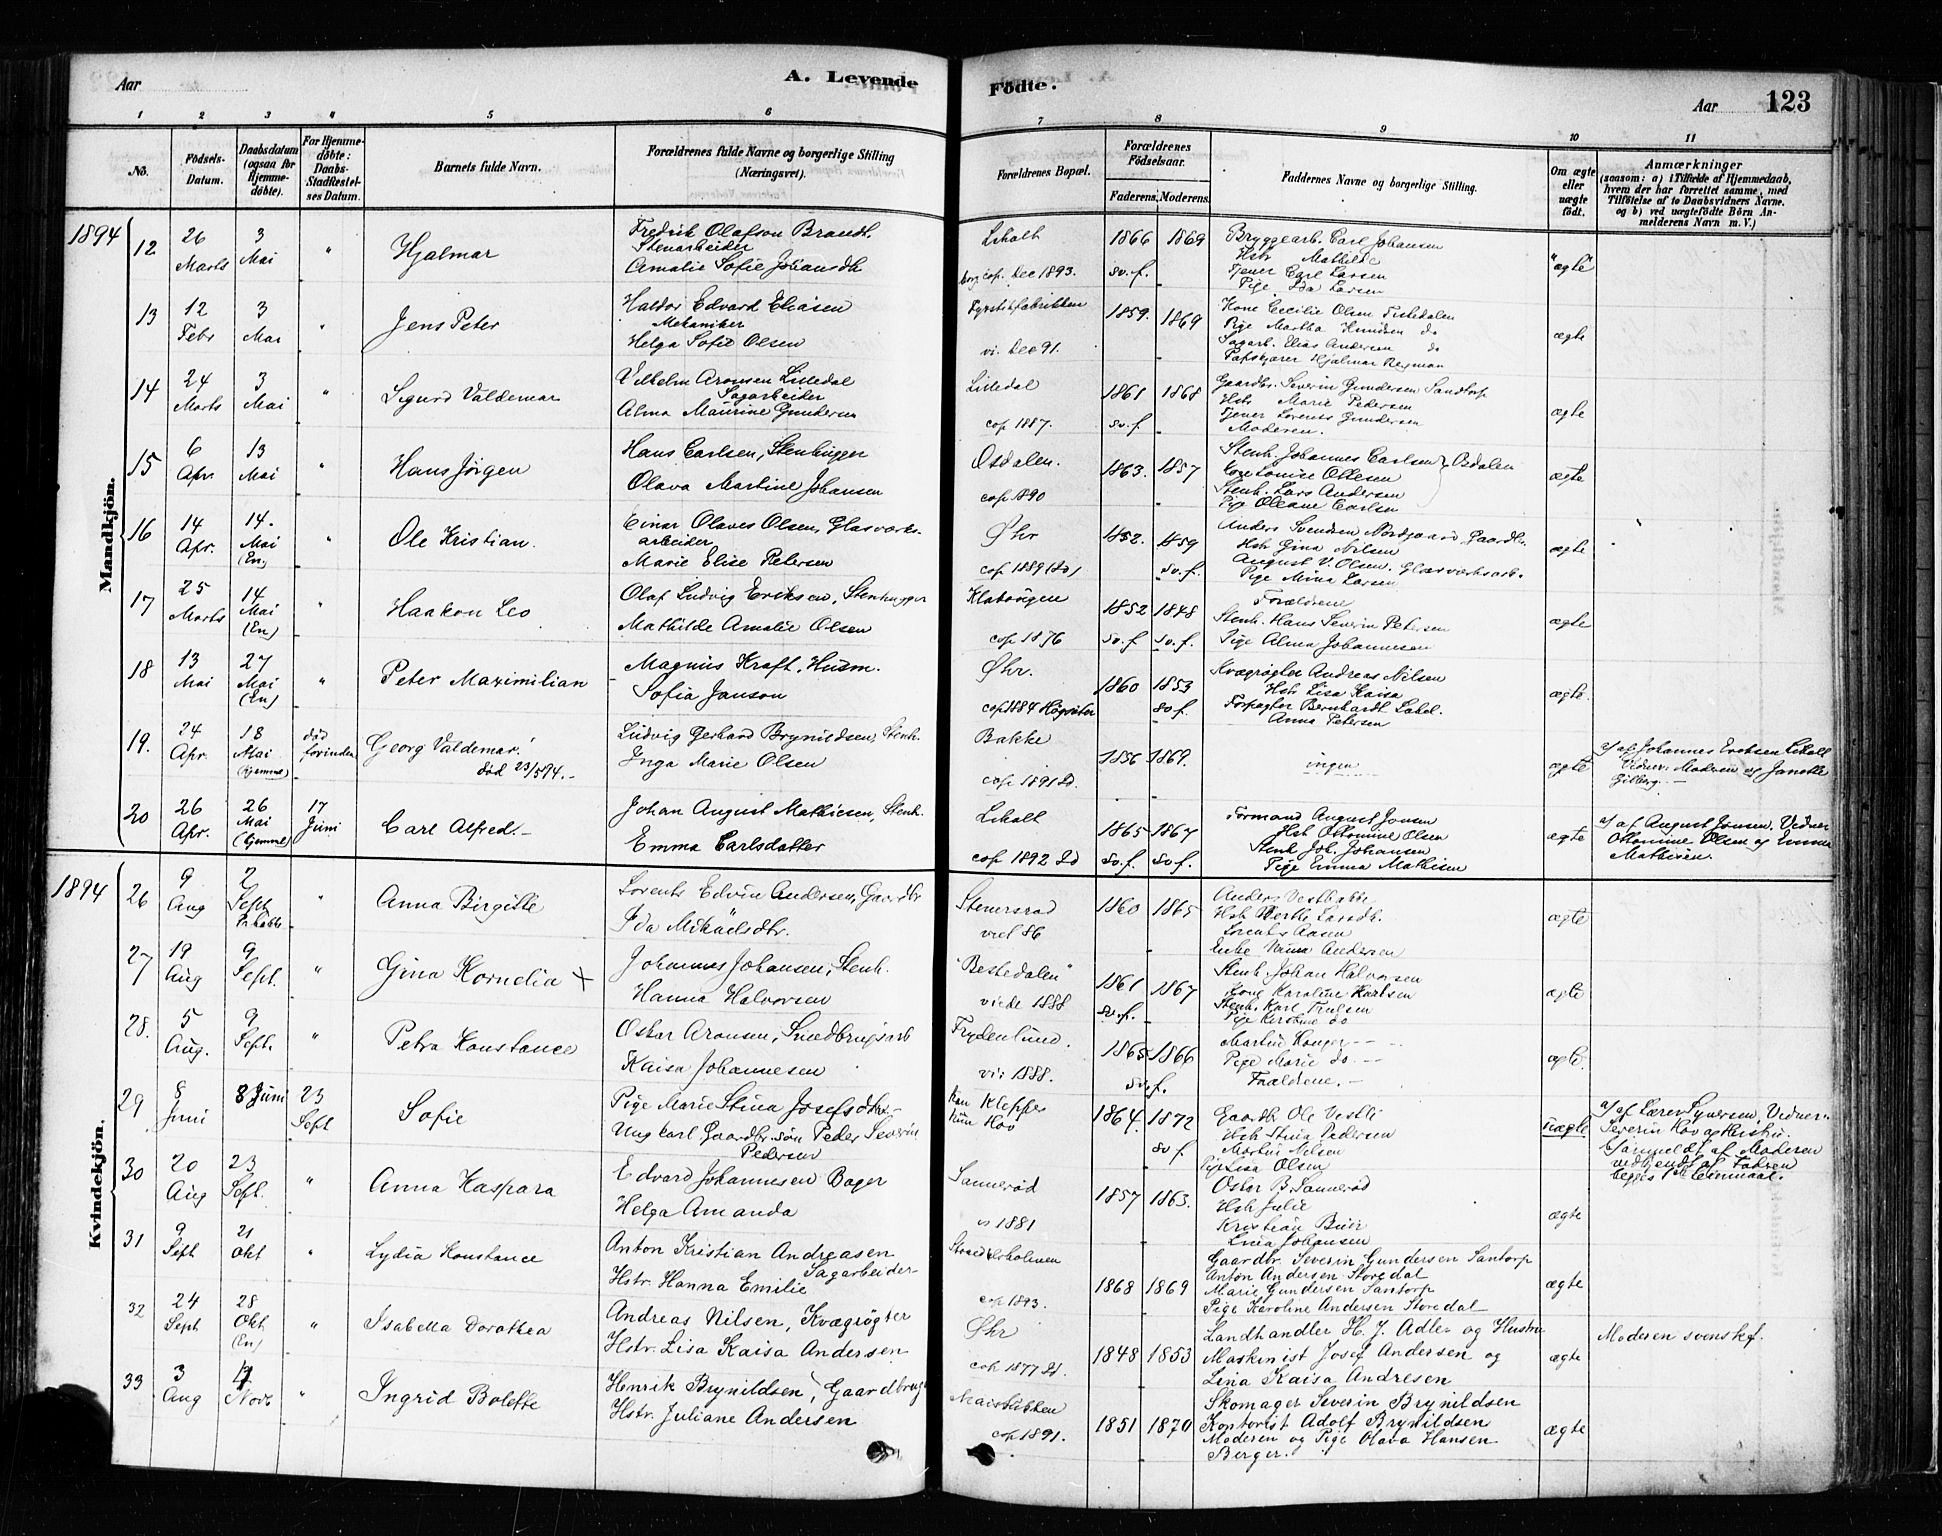 Aar
A. Levende
Födte.
Aar 123
1 2 3 " 5 6 7 8 9 10 11
No.
Födsels-Datum.
Daabsdatum (ogsaa for Hjemme-döbte).
For Hjemme-döbte: Daabs-Stadfestel-ses Datum.
Barnets fulde Navn.
Forældrenes fulde Navne og borgerlige Stilling (Næringsvei).
Forældrenes Bopæl.
Forældrenes Födselsaar.
Faderens. Moderens.
Faddernes Navne og borgerlige Stilling.
Om ægte eller uægte födt.
Anmærkninger
(saasom: a) i Tilfælde af Hjemmedaab, hvem der har forrettet samme, med Tilföielse af to Daabsvidners Navne. og b) ved uægtefödte Börn Anmelderens Navn m. V.)
Mandkjön.
1894
12 26 Marts 3 Mai " Hjalmar
Fredrik Olafson Brandt.
Stenarbeider
Amalie Sofie Johansdtr
Likolt
cop. Dec 1893.
1866 1869
sv. f.
Bryggearb. Carl Johansen
Hstr Mathilde
Tjener Carl Larsen
Pige Ida Larsen
"ægte"
13 12 Febr 3 Mai " Jens Peter
Haldor Edvard Eliasen
Mekaniker
Helga Sofie Olsen
vi. Dec 91.
1859. 1869
Kone Cecilie Olsen Tistedalen
Pige Martha Knudsen do
Sagarb. Elias Andersen do
Hjalmar
ægte
14 24 Marts 3 Mai " Sigurd Valdemar
Vilhelm Aronsen Lilledal
Sagarbeider
Alma Maurine Gundersen
Lilledal
cop 1887.
1861 1868
sv. f
Gaardbr. Severin Gundersen Sandtorp
Hstr Marie Pedersen
Tjener Lorents Gundersen
Moderen.
ægte
15 6 Apr. 13 Mai " Hans Jörgen
Hans Carlsen, Stenhugger
Olava Martine Johansen
Osdalen.
cop 1890
1863. 1857
Stenh. Johannes Carlsen } Osdalen
Kone Louise Ottesen
Stenh. Lars Andersen
Pige Oleane Carlsen
ægte
16 14 Apr. 14. Mai (En) " Ole Kristian.
Einar Olaves Olsen, Glasværks-
arbeider
Marie Elise Petersen
Öhr
cop 1889 (Id)
1852. 1859
sv. f.
Anders Svendsen Nordgaard Gaardbr.
Hstr Gina Nilsen
August V. Olsen. Glasværksarb.
Pige Mina Larsen
ægte
17 25 Marts 14 Mai (En) " Haakon Leo
Olaf Ludvig Eriksen, Stenhugger
Mathilde Amalie Olsen
cop 1876
1852 1848
sv. f sv. f.
Forældrene
Stenh. Hans Severin Petersen
Pige Alma Johannesen
ægte
18 13 Mai 27 Mai (En) " Peter Maximilian
Magnus Kraft, Husm.
Sofia Janson
Öhr.
cop 1884
1860 1853
sv. f.
Kvægrögter Andreas Nilsen
Hstr Lisa Kaisa
Forpagter Bernhardt
Anna Petersen
ægte
19. 24 Apr. 18 Mai (Hjemme) död forinden
Georg Valdemar.
död 23/5 94.-
Ludvig Gerhard Brynildsen, Stenh.
Inga Marie Olsen
Bakke
cop 1891 Id.
1856 1869.
ingen
ægte
a) af Johannes Eriksen Likolt
Vidner. Moderen og
20 26 Apr. 26 Mai (Hjemme) 17 Juni
Carl Alfred.-
Johan August Mathiesen, Stenh.
Emma Carlsdatter
Likolt
cop 1892 Id
1865 1867
sv. f. sv. f.
Formand August Jonsen
Hstr Ottomine Olsen
Stenh Joh. Johansen
Pige Emma Mathisen
ægte
a) af August Jonsen. Vidner
Ottomine Olsen og Emma
Mathisen.
Kvindekjön.
1894
26 9 Aug 2 Sept " Anna Birgitte
Lorents Edvin Andersen, Gaardbr
Ida Mikaelsdtr.
Stenersrød
viet 86
1860 1865
Anders Vestbakke
Enke Anna Andersen
ægte
27 19 Aug 9 Sept. " Gina Kornelia X
Johannes Johansen, Stenh.
Hanna Halvorsen
"Bestedalen"
viede 1888
1861 1867
sv. f.
Stenh. Johan Halvorsen
Kone Karoline Karlsen
Stenh. Karl Trulsen
Pige Kirstine do
ægte
28. 5 Aug. 9 Sept. " Petra Konstance
Oskar Aronsen, Snedbrugsarb
Kaisa Johannesen
Frydenlund.
vi: 1888.
1865 1866
sv. f.
Pige Marie do
Forældrene.-
ægte.
29 8 Juni 8 Juni 23 Sept
Sofie
Pige Marie Stina Josefsdtr.-
Ungkarl Gaardbr. sön Peder Severin
Pedersen
1864 1872
sv f
Gaardbr Ole Vestli
Hstr Stina Pedersen
Martin Nilsen
Pige Lisa Olsen
uægte
a) af Lærer Syversen, Vidner:
Anmeldt af Moderen
vedkjendt af Faderen
begges 1ste Leiermaal.
30 20 Aug 23 Sept. " Anna Kaspara
Edvard Johannesen Bager
Helga Amanda
Sannerød
1881
1857 1863.
Oskar B. Sannerød
Hstr Julie
Kristian
Lina Johansen
ægte
31 9 Sept 21 Okt " Lydia Konstance
Anton Kristian Andreasen
Sagarbeider
Hstr. Hanna Emilie
cop 1893.
1868 1869
Gaardbr. Severin Gundersen Santorp
Anton Andersen Storedal
Marie Gundersen Santorp
Pige Karoline Andersen Storedal
ægte
32 24 Sept 28 Okt (En) " Isabella Dorothea
Andreas Nilsen, Kvægrögter
Hstr. Lisa Kaisa Andersen
Öhr
cop 1877 Id.
1848 1853
Landhandler H. J. Adler og Hustru
Maskinist Josef Andersen og
Lina Kaisa Andresen
ægte
Moderen svenskf.
33 3 Aug 4 Novb " Ingrid Bolette
Henrik Brynildsen, Gaardbrug
Hstr. Juliane Andersen
cop 1891.
1851 1870
Skomager Severin Brynildsen
Kontorist Adolf Brynildsen
Moderen og Pige Olava Hansen
Berger.
ægte